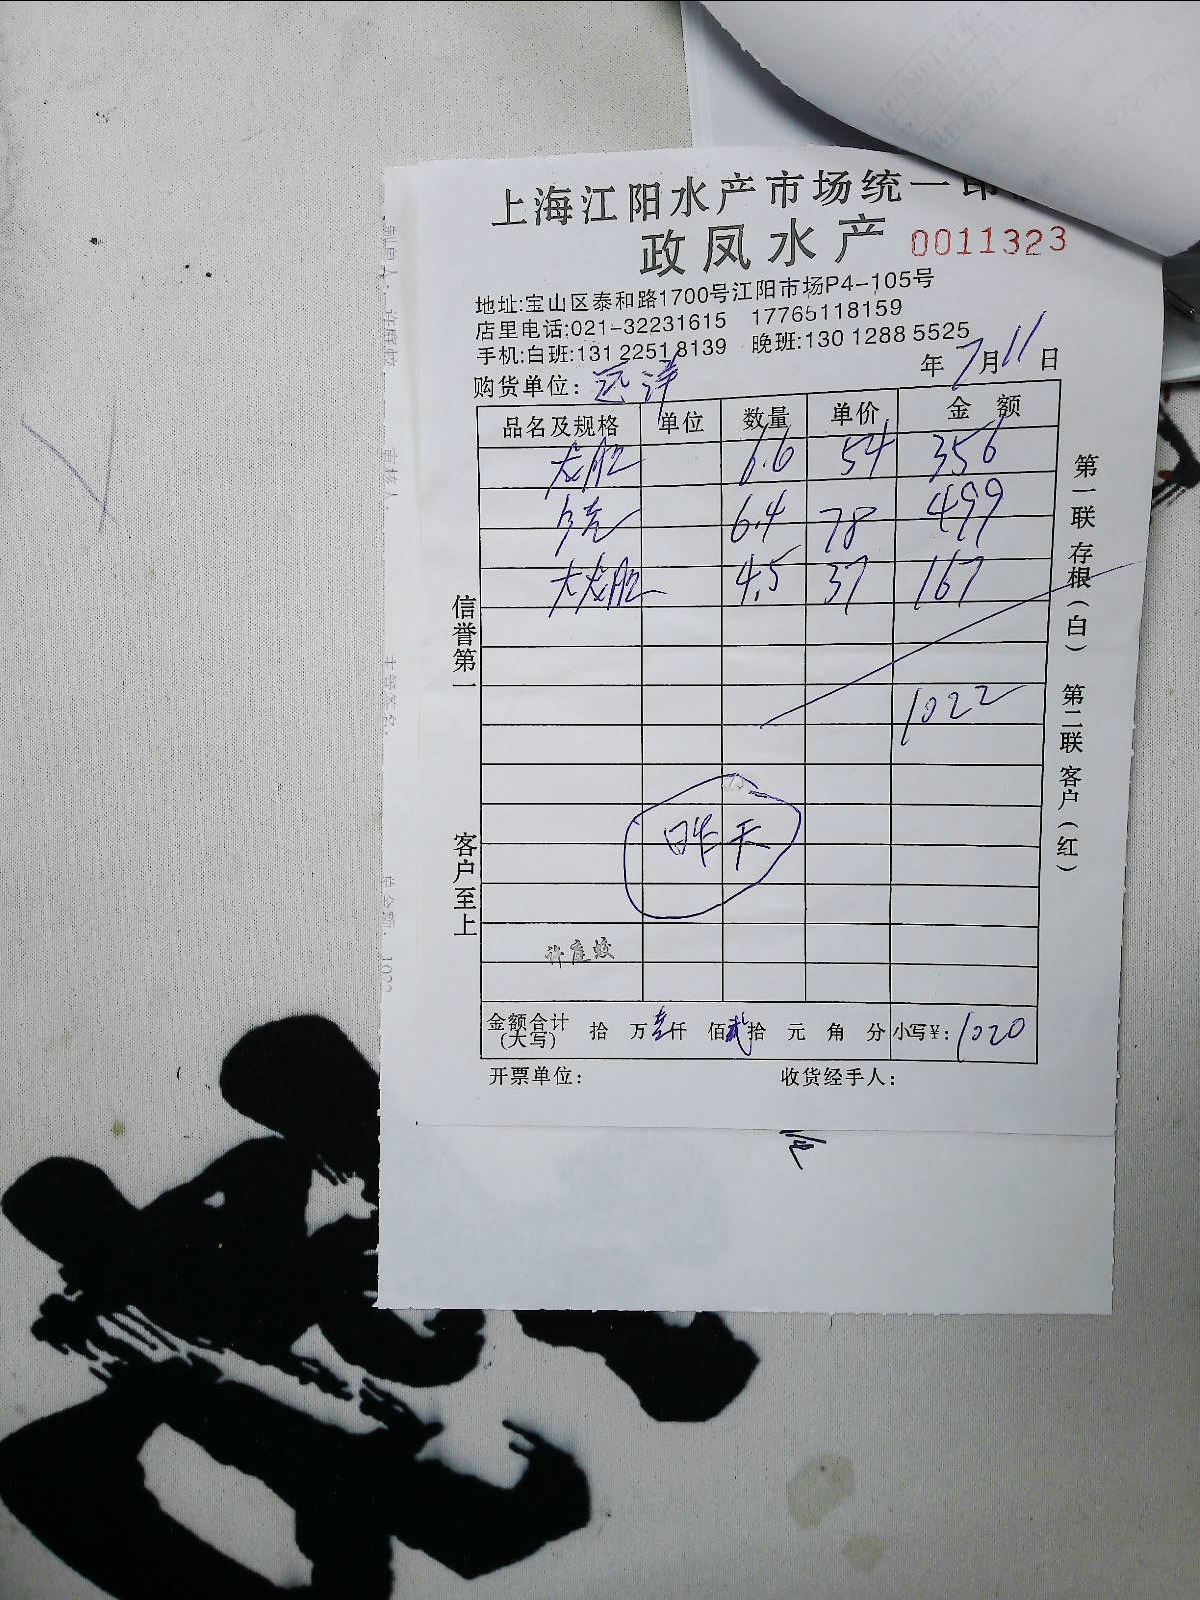 上海江阳水产市场统一印
政凤水产 0011323
地址:宝山区泰和路1700号江阳市场P4-105号
店里电话:021-32231615 17765118159
手机:白班:131 2251 8139 晚班:130 1288 5525
购货单位: 远洋 年 7月11日
品名及规格 单位 数量 单价 金额
龙胆 6.6 54 356
6.4 78 499
大龙胆 4.5 37 167
1022
昨天
许庭蛟
金额合计(大写) 拾 万壹仟 佰贰拾 元 角 分 小写¥: 1020
开票单位: 收货经手人:
信誉第一
客户至上
第一联 存根(白) 第二联 客户(红)